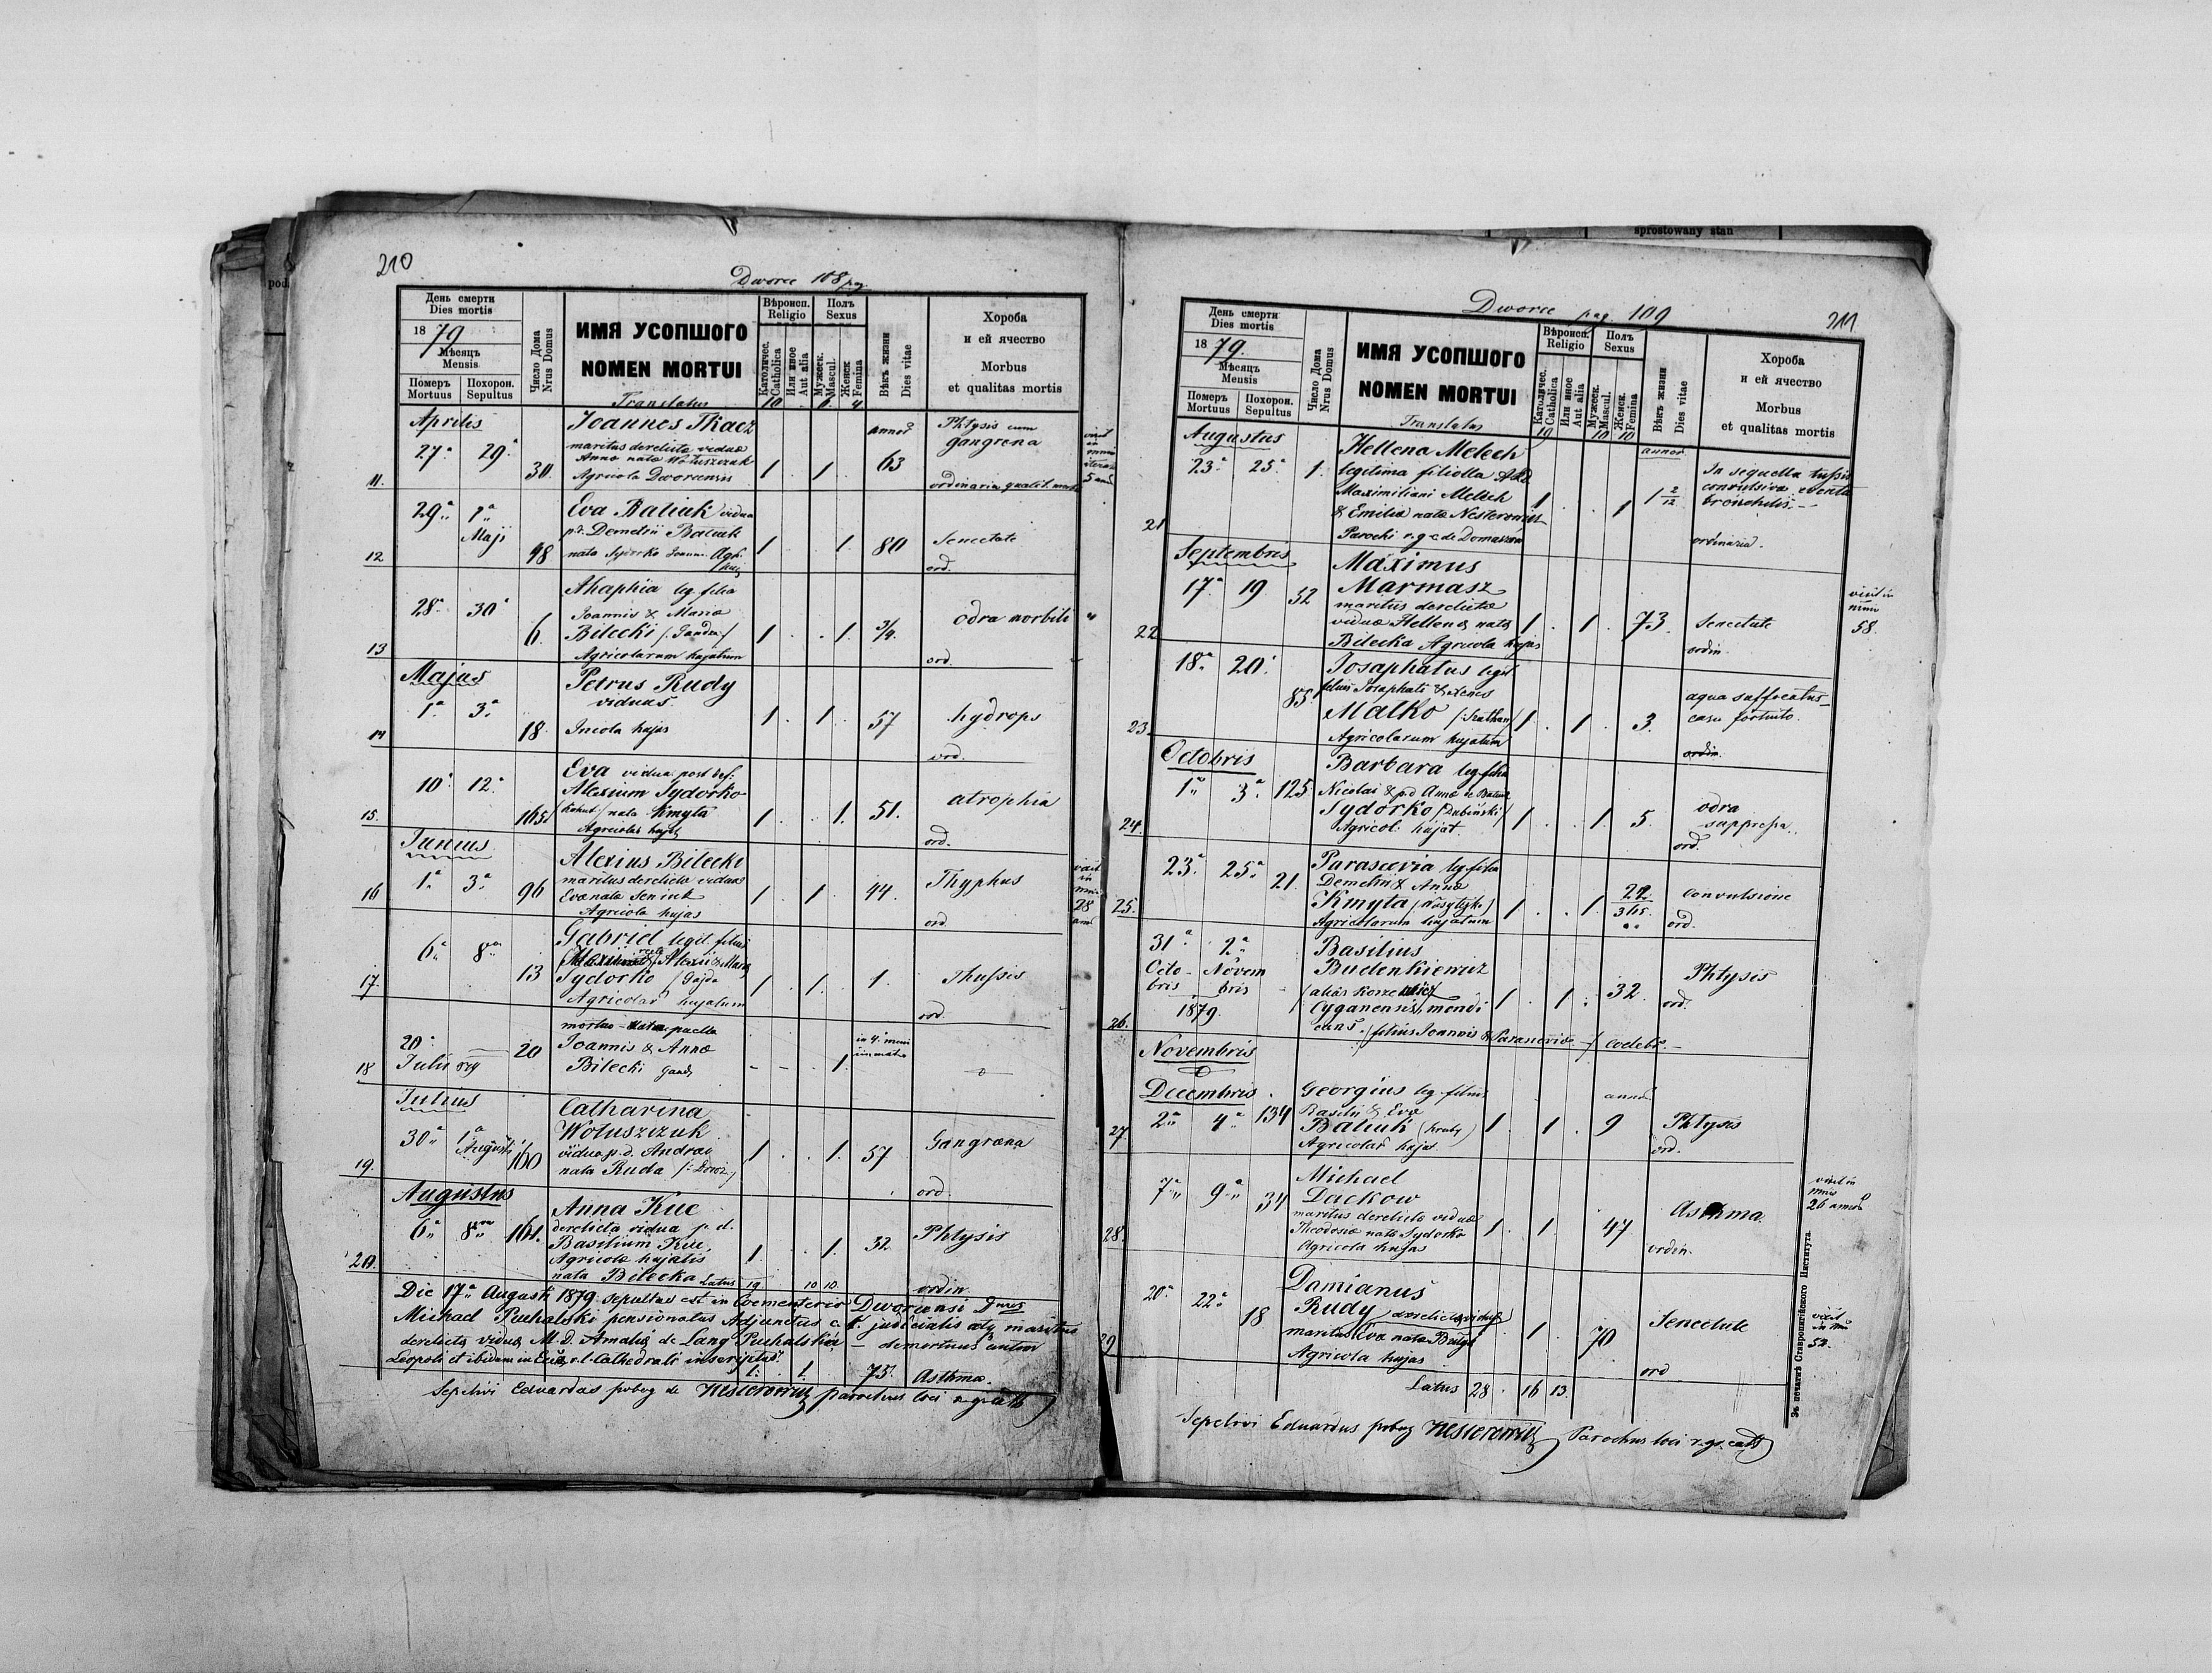 210
Dworce 108 pag.
День смерти
Dies mortis
1879
Мѣсяць
Mensis
Померъ
Mortuus
Похорон.
Sepultus
Число Дома
Nrus Domus
ИМЯ УСОПШОГО
NOMEN MORTUI
Вѣроисп.
Religio
Католичес.
Catholica
Или иное
Aut alia
Полъ
Sexus
Мужеск.
Mascul.
Женск
Femina
Вѣкъ жизни
Dies vitae
Хороба
и ей ячество
Morbus
et qualitas mortis
Translatus 10 6 4
Aprilis
11. 27a 29a 30
Joannes Tkacz
maritus derelictæ viduæ
Annæ natæ Wołuszczuk
Agricola Dworcensis
1 1 annor 63
Phtysis cum
gangrena
ordinaria qualit. mortis
12 29a 1a Maji 48
Eva Baliuk vidua
p. d. Demetrii Baliuk
nata Sydorko Joann. Agr.
huj
1 1. 80
Senectute
ord.
13 28a 30a 6.
Ahaphia leg. filia
Joannis & Mariæ
Bilecki /: Gandza /
Agricolarum hujatum
1 1. 3/4.
odra morbili
ord.
Majus
14 1a 3a 18
Petrus Rudy
viduus
Incola hujas
1 1 57
hydrops
ord.
15. 10a 12a 165
Eva vidua post def:
Alexium Sydorko
nata Kmyta
Agricola hujas
1 1. 51.
atrophia
ord.
Junius
16 1a 3a 96
Alexius Bilecki
maritus derelictæ viduæ
Evæ natæ Seniuk
Agricola hujas
1 1 44.
Thyphus
ord.
vixit
in
mnio
28
ann
17. 6a 8va 13
Gabriel legit. filius
Alexii & Mariæ
Sydorko / Gajda
Agricolar hujatum
1 1. 1.
Thussis
ord.
18 20a Julii 879 20
mortuo-nata puella
Joannis & Annæ
Bilecki Gandz
- - 1.
in 4. mensi
immat.
Julius
19. 30a 1a Augusti 160
Catharina
Wołuszczuk
vidua p. d. Andreæ
nata Ruda
1 1. 57
Gangræna
ord.
Augustus
20. 6a 8va 161.
Anna Kuc
derelicta vidua p. d.
Basilium Kuc,
Agricola hujatis
nata Bilecka
1. 1. 32
Phtysis
ordin.
Latus 19 10 10.
Die 17a Augusti 1879 sepultus est in Coementerio Dworcensi Dnus
Michael Puchalski pensionatus Adjunctus c. k. judicialis atq maritus
derelictæ viduæ M. d. Amaliæ de Lang Puchalskiæ - demortuus autem
Leopoli et ibidem in Eccl. r. l. Cathedrali inscriptus.
1. 1. 73. Asthma.
Sepelivi Eduardus pobog de Nesterowicz parochus loci r. gr. cath
Dworce pag. 109
211
День смерти
Dies mortis
1879.
Мѣсяць
Mensis
Померъ
Mortuus
Похорон.
Sepultus
Число Дома
Nrus Domus
ИМЯ УСОПШОГО
NOMEN MORTUI
Вѣроисп.
Religio
Католичес.
Catholica
Или иное
Aut alia
Полъ
Sexus
Мужеск.
Mascul.
Женск.
Femina
Вѣкъ жизни
Dies vitae
Хороба
и ей ячество
Morbus
et qualitas mortis
Translatus 19 10 10
Augustus
21 23a 25a 1.
Hellena Melech
legitima filiolla
Maximiliani Melech
& Emiliæ natæ Nesterowicz
Parochi r. g. c. de
1 1 annor 1 2/12
In sequella tussis
convulsivæ
bronchitis. -
ordinaria.
Septembris
22 17a 19 52
Maximus
Marmasz
maritus derelictæ
viduæ Hellenæ natæ
Bilecka Agricola hujas
1 1 73.
Senectute
ordin
vixit in
mnio
58.
23. 18a 20a 85.
Josaphatus legit
filius Josaphati &
Malko
Agricolarum hujatum
1 1 3.
aqua suffocatus -
casu fortuito.
ordin.
Octobris
24. 1a 3a 125
Barbara leg. filia
Nicolai & p.d Annæ de Baliuk
Sydorko / Dubiński /
Agricol. hujat.
1 1 5.
odra
suppressa.
ord.
25. 23a 25a 21.
Parascevia leg. filia
Demetrii & Annæ
Kmyta
Agricolarum hujatum
1 1 22/365.
Convulsione
ord.
26. 31a Octobris 2a Novembris
1879.
Basilius
Budenkiewicz
Cyganensis, mendi
cans. / filius Joannis & Parasceviæ / coelebs. -
1 1 32.
Phtysis
ord.
Novembris
0
Decembris
27. 2a 4a 134
Georgius leg. filius
Basilii & Evæ
Baliuk
Agricolar hujas
1 1 annor 9
Phtysis
ord.
28. 7a 9a 34
Michael
Dackow
maritus derelictæ viduæ
Theodosiæ natæ Sydorko
Agricola hujas
1 1 47
Asthma.
ordin.
vixit in
mnio
26 annos
29 20a 22a 18
Damianus
Rudy derelictæ viduæ
maritus Evæ natæ
Agricola hujas
1 70
Senectute
ord
vixit
in mnio
52.
Latus 28 16 13.
Sepelivi Eduardus pobog Nesterowicz Parochus loci r. gr. cath
Зъ печатнѣ Ставропигійского Института.
sprostowany stan
pod